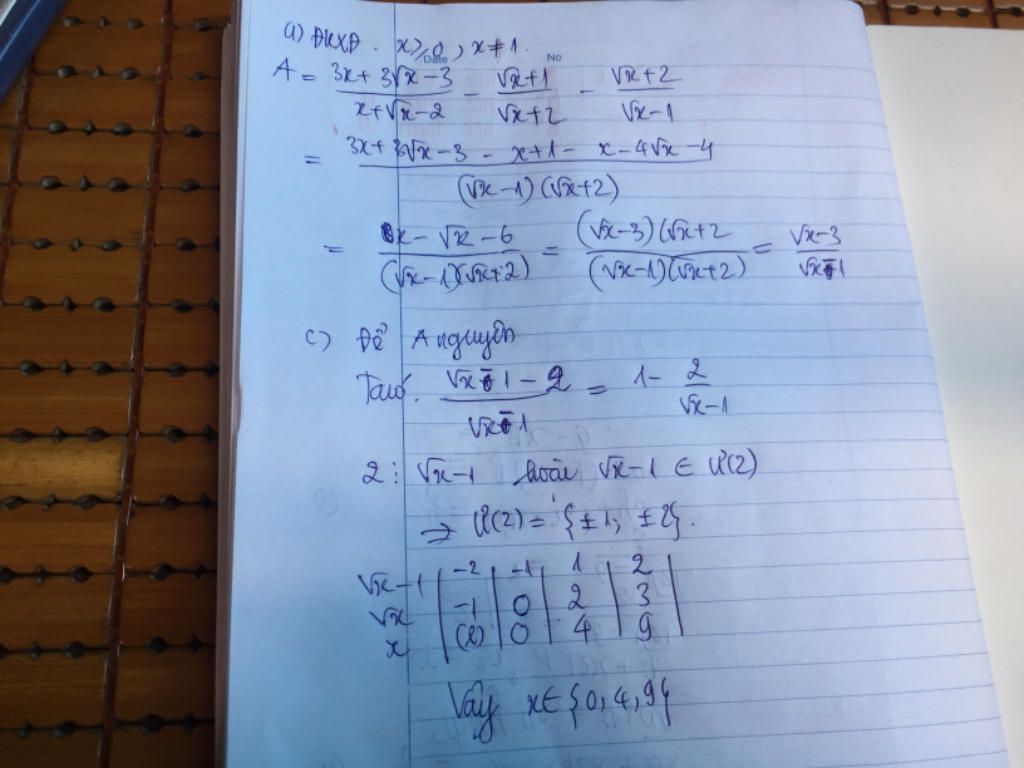 a) ĐKXĐ. x ≥ 0, x ≠ 1.
Date No
A = (3x + 3√x - 3)/(x + √x - 2) - (√x + 1)/(√x + 2) - (√x + 2)/(√x - 1)
= (3x + 3√x - 3 - x + 1 - x - 4√x - 4)/((√x - 1)(√x + 2))
= (x - √x - 6)/((√x - 1)(√x + 2)) = ((√x - 3)(√x + 2)/((√x - 1)(√x + 2)) = (√x - 3)/(√x - 1)
c) Để A nguyên
Ta có. (√x - 1 - 2)/(√x - 1) = 1 - 2/(√x - 1)
2 ⋮ √x - 1 √x - 1 ∈ Ư(2)
⇒ Ư(2) = {±1; ±2}.
√x - 1 | -2 | -1 | 1 | 2 |
√x | -1 | 0 | 2 | 3 |
x | (l) | 0 | 4 | 9 |
Vậy x ∈ {0, 4, 9}